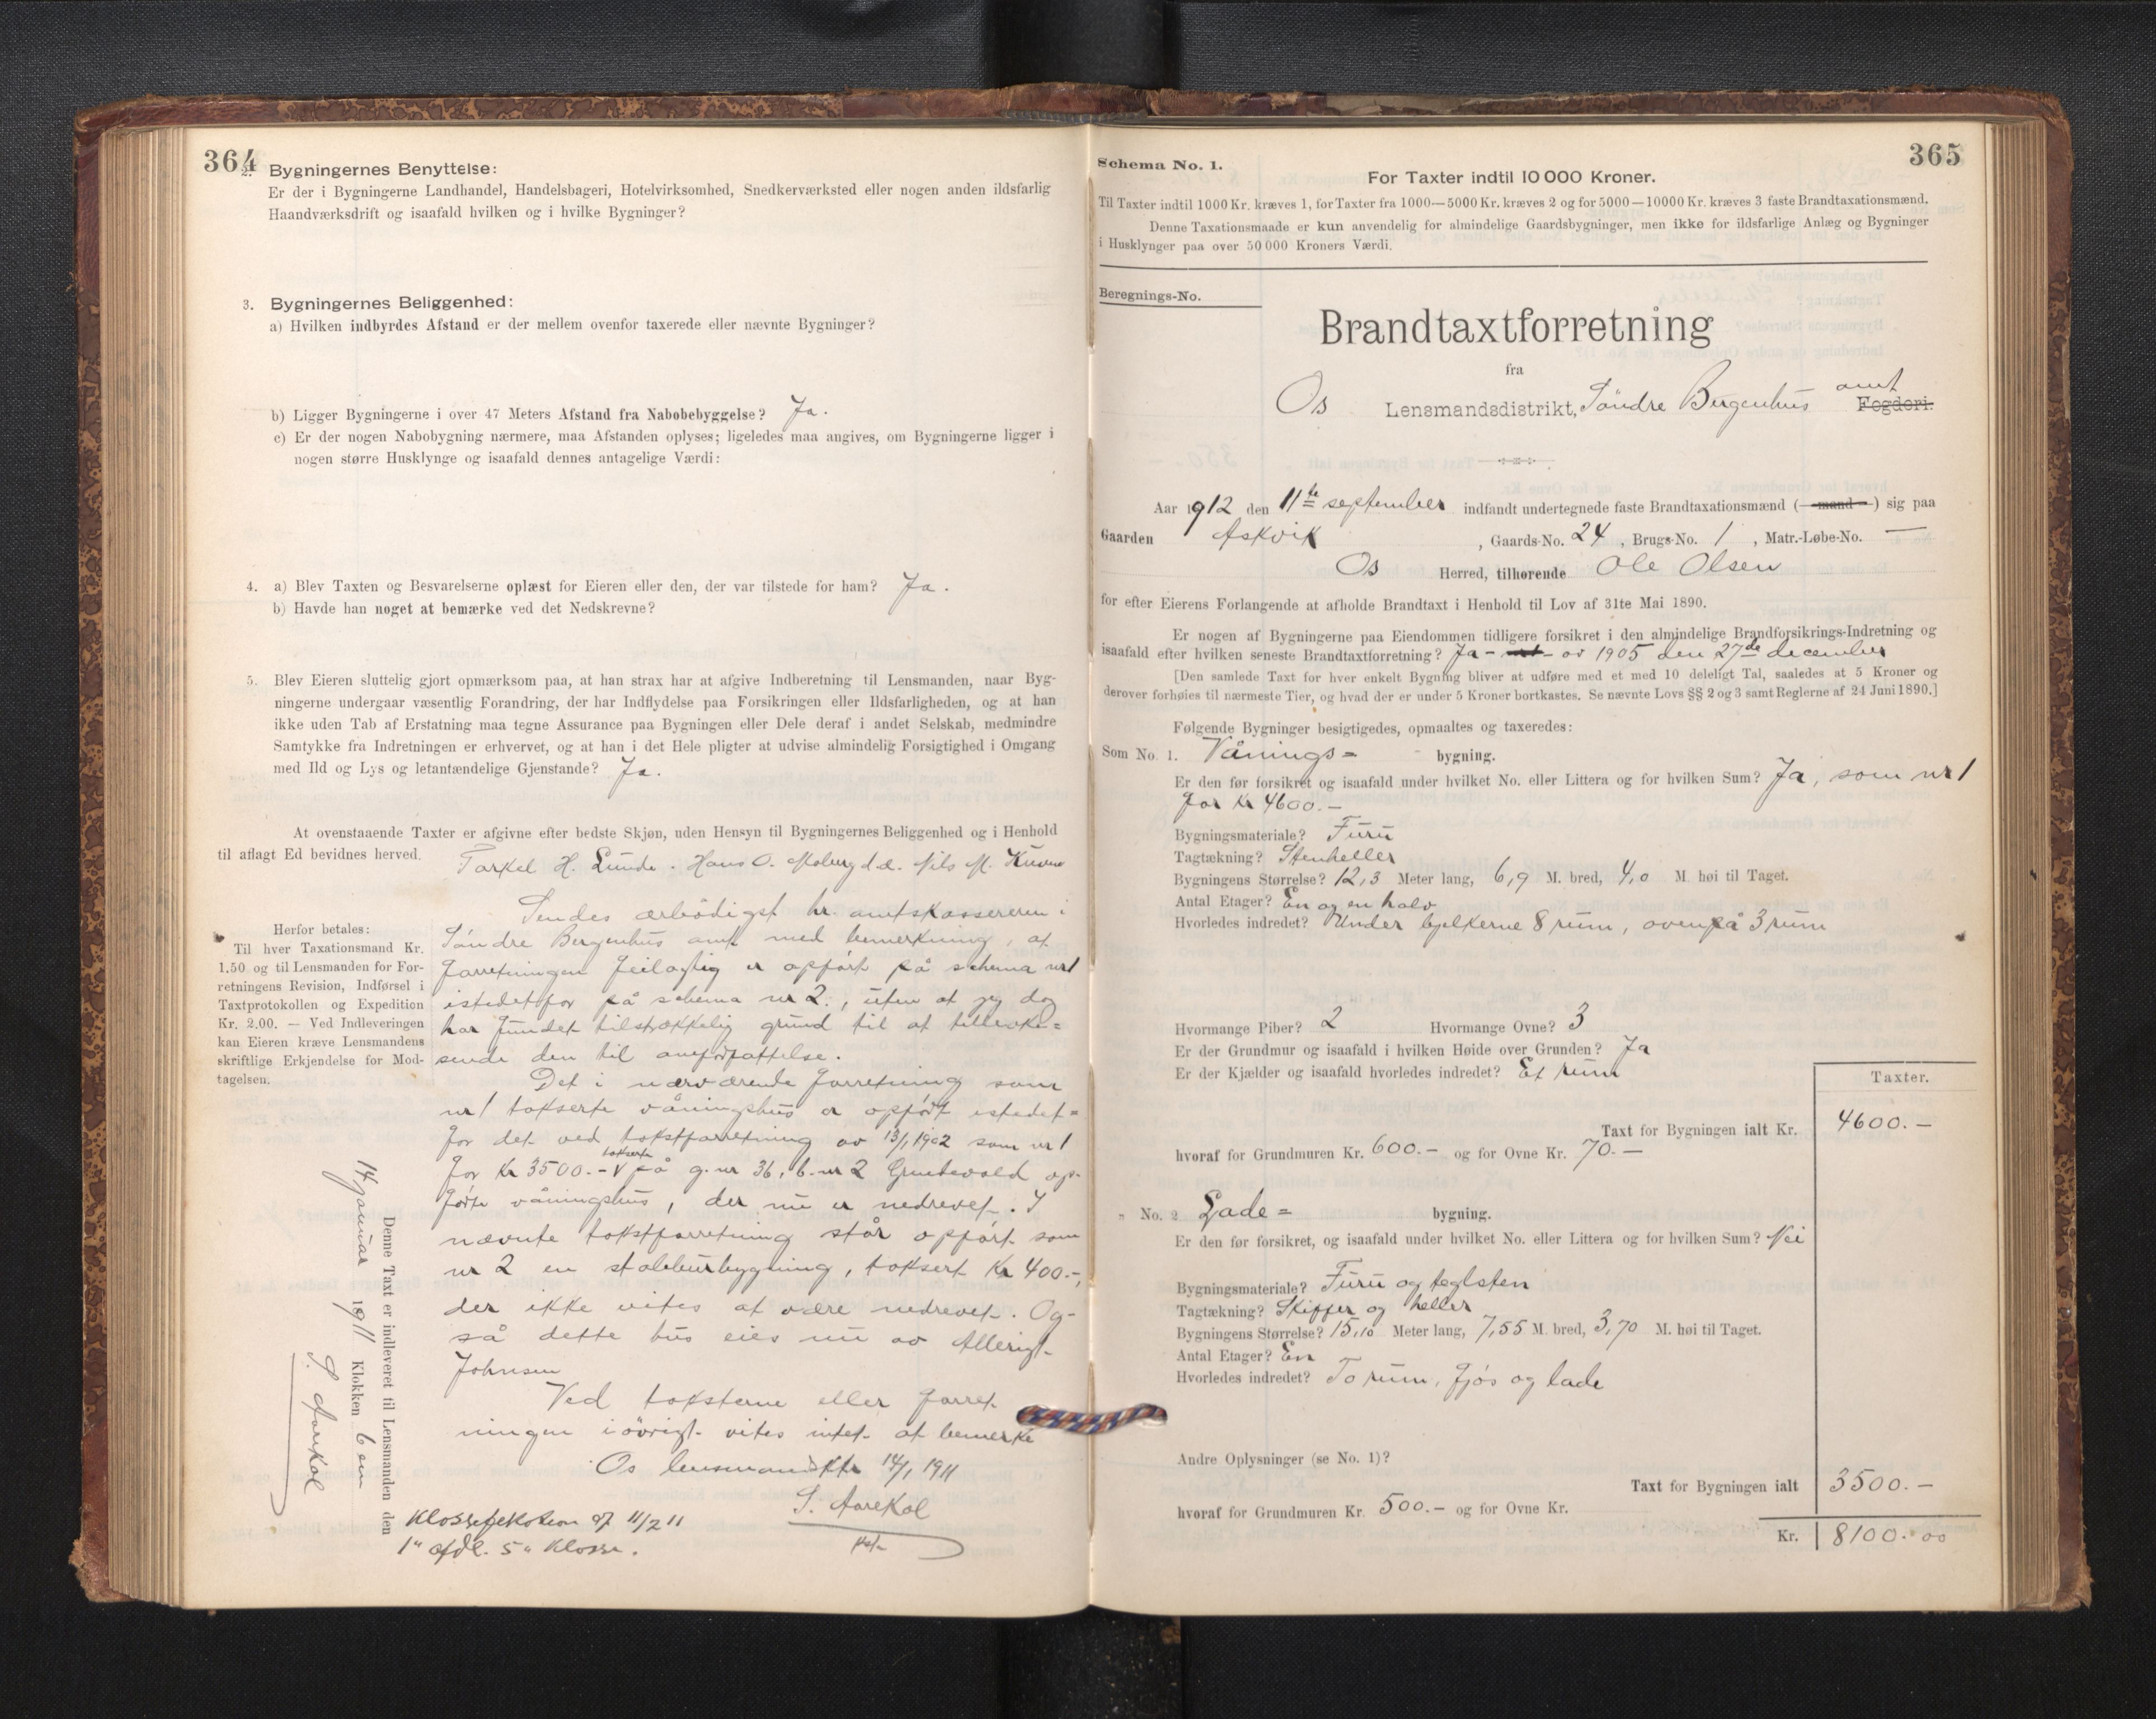 364
2. Bygningernes Benyttelse:
Er der i Bygningerne Landhandel, Handelsbageri, Hotelvirksomhed, Snedkerværksted eller nogen anden ildsfarlig
Haandværksdrift og isaafald hvilken og i hvilke Bygninger?
3. Bygningernes Beliggenhed:
a) Hvilken indbyrdes Afstand er der mellem ovenfor taxerede eller nævnte Bygninger?
b) Ligger Bygningerne i over 47 Meters Afstand fra Nabobebyggelse? Ja.
c) Er der nogen Nabobygning nærmere, maa Afstanden oplyses; ligeledes maa angives, om Bygningerne ligger i
nogen større Husklynge og isaafald dennes antagelige Værdi:
4. a) Blev Taxten og Besvarelserne oplæst for Eieren eller den, der var tilstede for ham? Ja.
b) Havde han noget at bemærke ved det Nedskrevne?
5. Blev Eieren sluttelig gjort opmærksom paa, at han strax har at afgive Indberetning til Lensmanden, naar Byg-
ningerne undergaar væsentlig Forandring, der har Indflydelse paa Forsikringen eller Ildsfarligheden, og at han
ikke uden Tab af Erstatning maa tegne Assurance paa Bygningen eller Dele deraf i andet Selskab, medmindre
Samtykke fra Indretningen er erhvervet, og at han i det Hele pligter at udvise almindelig Forsigtighed i Omgang
med Ild og Lys og letantændelige Gjenstande? Ja.
At ovenstaaende Taxter er afgivne efter bedste Skjøn, uden Hensyn til Bygningernes Beliggenhed og i Henhold
til aflagt Ed bevidnes herved. Torkel H. Lunde. Hans O. Moberg d.æ. Nils M.
Herfor betales:
Til hver Taxationsmand Kr.
1.50 og til Lensmanden for For-
retningens Revision, Indførsel i
Taxtprotokollen og Expedition
Kr. 2.00. — Ved Indleveringen
kan Eieren kræve Lensmandens
skriftlige Erkjendelse for Mod-
tagelsen.
Sendes ærbödigst hr. amtskassereren i
Söndre Bergenhus amt med bemerkning, at
forretningen feilagtig er opført på schema nr 1
istedetfor på schema nr 2., uten at jeg dog
har fundet tilstrækkelig grund til at tilbake=
sende den til omforfattelse.
Det i nærværende forretning som
nr 1 takserte våningshus er opført istedet=
for det ved takstforretning av 13/1 1902 som nr 1
for Kr 3500.- takserte på g.nr 36, b.nr 2 op-
førte våningshus, der nu er nedrevet. I
nævnte takstforretning står opført som
nr 2 en stabbursbygning, taksert Kr 400.-,
der ikke vites at være nedrevet. Og-
så dette hus eies nu av
Johnsen
Ved taksterne eller forret-
ningen iövrigt vites intet at bemerke
Os lensmandsktr 14/1 1911
S. Aarekol
Klassifikation af 11/2 11
1" afdl. 5" Klasse.
Denne Taxt er indleveret til Lensmanden den
14 januar 1911 Klokken 6 em
S. Aarekol
365
Schema No. 1.
For Taxter indtil 10 000 Kroner.
Til Taxter indtil 1000 Kr. kræves 1, for Taxter fra 1000—5000 Kr. kræves 2 og for 5000—10000 Kr. kræves 3 faste Brandtaxationsmænd.
Denne Taxationsmaade er kun anvendelig for almindelige Gaardsbygninger, men ikke for ildsfarlige Anlæg og Bygninger
i Husklynger paa over 50 000 Kroners Værdi.
Beregnings-No.
Brandtaxtforretning
fra
Os Lensmandsdistrikt, Söndre Bergenhus amt Fogderi.
Aar 1912 den 11te september indfandt undertegnede faste Brandtaxationsmænd (—mand—) sig paa
Gaarden Askvik, Gaards-No. 24, Brugs-No. 1, Matr.-Løbe-No. —
Os Herred, tilhørende Ole Olsen
for efter Eierens Forlangende at afholde Brandtaxt i Henhold til Lov af 31te Mai 1890.
Er nogen af Bygningerne paa Eiendommen tidligere forsikret i den almindelige Brandforsikrings-Indretning og
isaafald efter hvilken seneste Brandtaxtforretning? Ja - av 1905 den 27de december
[Den samlede Taxt for hver enkelt Bygning bliver at udføre med et med 10 deleligt Tal, saaledes at 5 Kroner og
derover forhøies til nærmeste Tier, og hvad der er under 5 Kroner bortkastes. Se nævnte Lovs §§ 2 og 3 samt Reglerne af 24 Juni 1890.]
Følgende Bygninger besigtigedes, opmaaltes og taxeredes:
Som No. 1. Vånings= bygning.
Er den før forsikret og isaafald under hvilket No. eller Littera og for hvilken Sum? Ja, som nr 1
for Kr 4600.-
Bygningsmateriale? Furu
Tagtækning? Stenheller
Bygningens Størrelse? 12,3 Meter lang, 6,9 M. bred, 4,0 M. høi til Taget.
Antal Etager? En og en halv
Hvorledes indredet? Under bjelkerne 8 rum, ovenpå 3 rum
Hvormange Piber? 2 Hvormange Ovne? 3
Er der Grundmur og isaafald i hvilken Høide over Grunden? Ja
Er der Kjælder og isaafald hvorledes indredet? Et rum
Taxter.
Taxt for Bygningen ialt Kr. 4600.-
hvoraf for Grundmuren Kr. 600.- og for Ovne Kr. 70.-
" No. 2 Lade= bygning.
Er den før forsikret, og isaafald under hvilket No. eller Littera og for hvilken Sum? Nei
Bygningsmateriale? Furu og teglsten
Tagtækning? Skiffer og heller
Bygningens Størrelse? 15,10 Meter lang, 7,55 M. bred, 3,70 M. høi til Taget.
Antal Etager? En
Hvorledes indredet? To rum, fjøs og lade
Andre Oplysninger (se No. 1)?
Taxt for Bygningen ialt 3500.-
hvoraf for Grundmuren Kr. 500.- og for Ovne Kr.
Kr. 8100.00